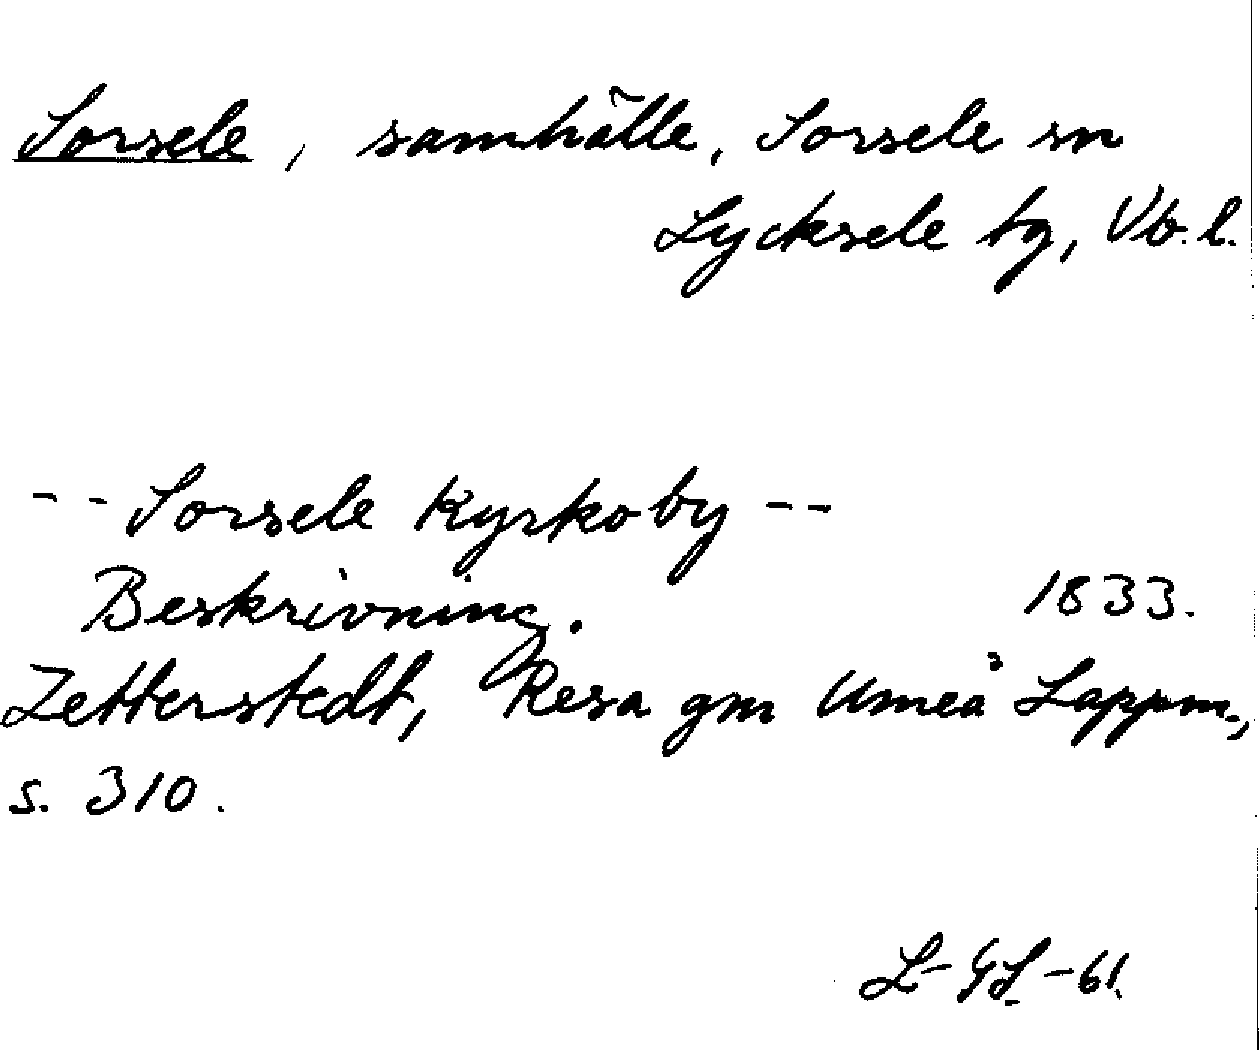 Sorsele, samhälle, Sorsele sn
Lycksele tg, Vb. l.
-- Sorsele Kyrkoby --
Beskrivning. 1833.
Zetterstedt, Resa gm Umeå Lappm.,
s. 310.
L-GS-61.